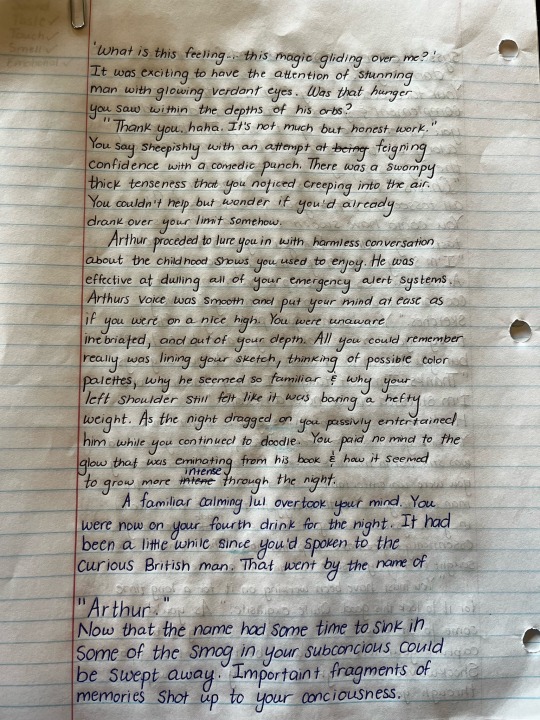 Taste ✓
Touch ✓
Smell ✓
'What is this feeling... this magic gliding over me?'
It was exciting to have the attention of stunning
man with glowing verdant eyes. Was that hunger
you saw within the depths of his orbs?
"Thank you, haha. It's not much but honest work."
You say sheepishly with an attempt at being feigning
confidence with a comedic punch. There was a swompy
thick tenseness that you noticed creeping into the air.
You couldn't help but wonder if you'd already
drank over your limit somehow.
Arthur proceded to lure you in with harmless conversation
about the childhood shows you used to enjoy. He was
effective at dulling all of your emergency alert systems.
Arthurs voice was smooth and put your mind at ease as
if you were on a nice high. You were unaware
inebriated, and out of your depth. All you could remember
really was lining your sketch, thinking of possible color
palettes, why he seemed so familiar & why your
left shoulder still felt like it was baring a hefty
weight. As the night dragged on you passivly entertained
him while you continued to doodle. You paid no mind to the
glow that was eminating from his book & how it seemed
to grow more intene intense through the night.
A familiar calming lul overtook your mind. You
were now on your fourth drink for the night. It had
been a little while since you'd spoken to the
curious British man. That went by the name of
"Arthur."
Now that the name had some time to sink in
some of the smog in your subconcious could
be swept away. Important fragments of
memories shot up to your conciousness.